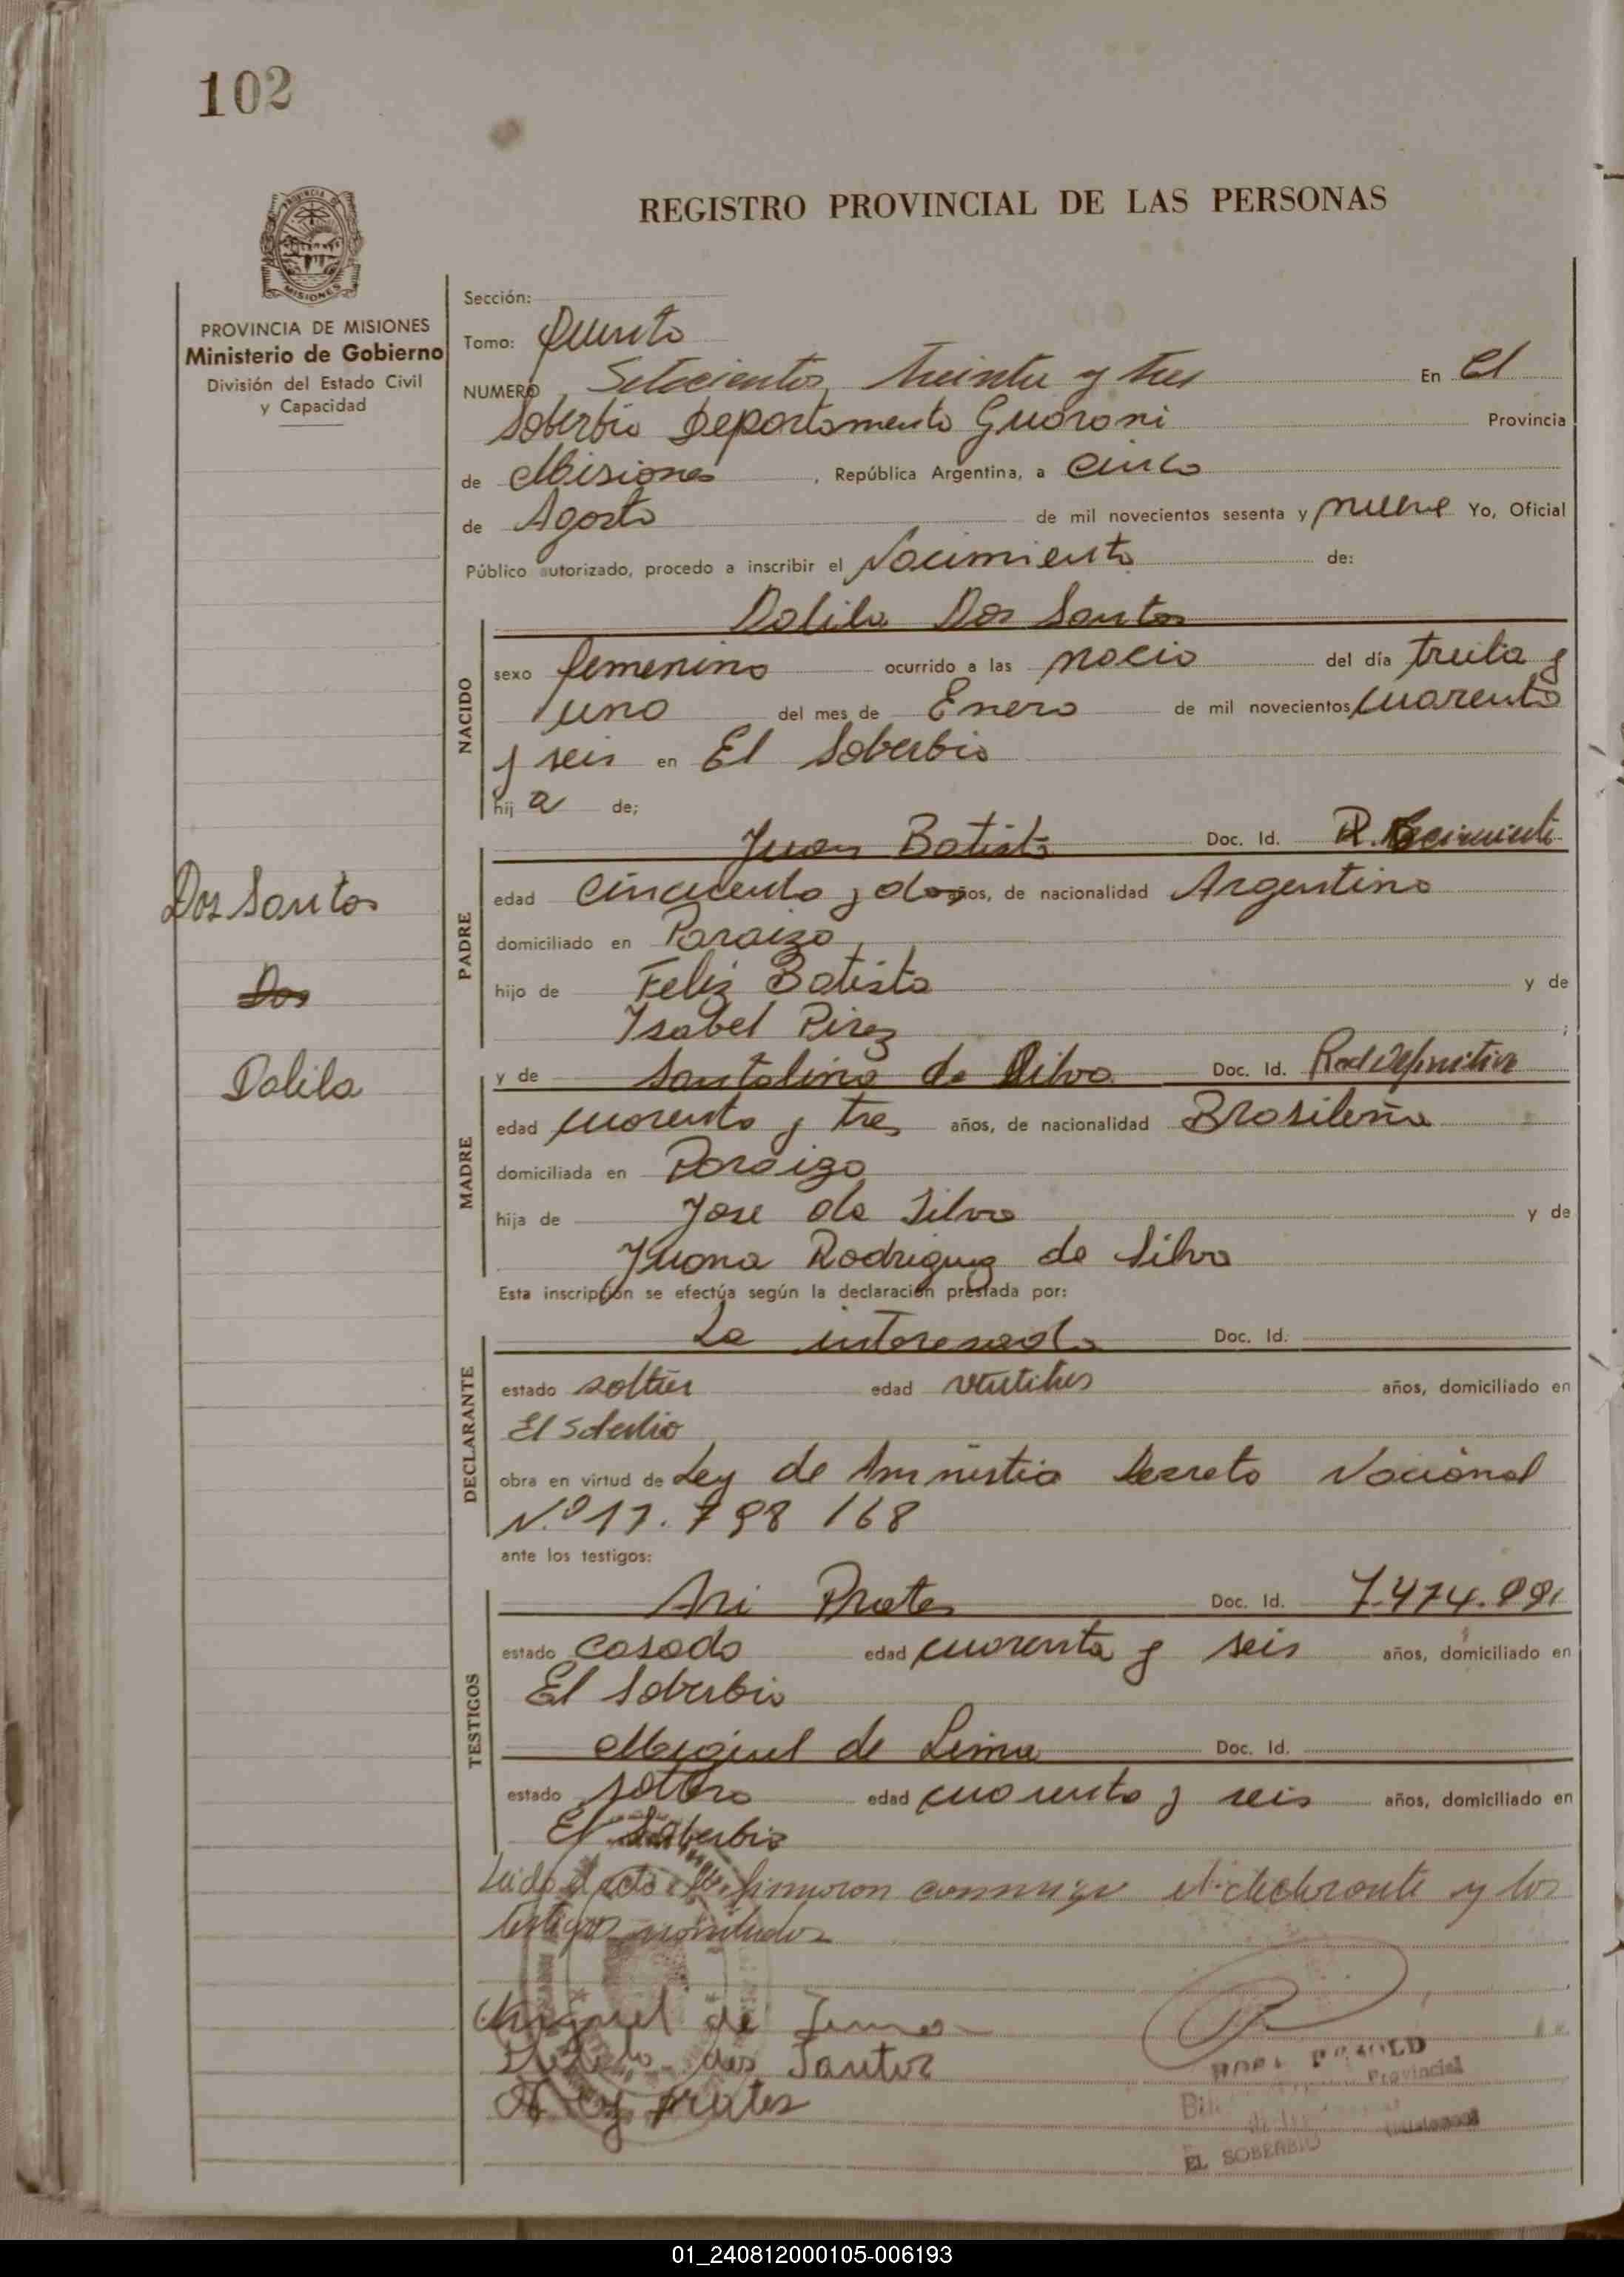 102
PROVINCIA DE MISIONES
REGISTRO PROVINCIAL DE LAS PERSONAS
PROVINCIA DE MISIONES
Ministerio de Gobierno
División del Estado Civil
y Capacidad
Sección:
Tomo: Quinto
NUMERO Setecientos treinta y tres En El
Soberbio Departamento Guarani Provincia
de Misiones, República Argentina, a cinco
de Agosto de mil novecientos sesenta y nueve Yo, Oficial
Público autorizado, procedo a inscribir el Nacimiento de:
Dalila Dos Santos
NACIDO
sexo femenino ocurrido a las del día treita y
uno del mes de Enero de mil novecientos cuarenta
y seis en El Soberbio
hij a de;
Juan Batista Doc. Id.
PADRE
edad Cincuenta y dos años, de nacionalidad Argentino
domiciliado en Paraizo
hijo de Feliz Batista y de
Isabel Pirez ;
Dos Santos
Dos
Dalila
MADRE
y de Santalina da Silva Doc. Id.
edad cuarenta y tres años, de nacionalidad Brasileña
domiciliada en Paraizo
hija de Jose da Silva y de
Juana Rodriguez da Silva
Esta inscripción se efectúa según la declaración prestada por:
DECLARANTE
La interesada Doc. Id.
estado edad años, domiciliado en
El Soberbio
obra en virtud de Ley de Amnistia Decreto Nacional
N.º 17.798/68
ante los testigos:
TESTIGOS
Ari Prates Doc. Id. 7.474.991
estado casado edad cuarenta y seis años, domiciliado en
El Soberbio
Miguel de Lima Doc. Id.
estado soltero edad cuarenta y seis años, domiciliado en
El Soberbio
Leido el acta firmaron conmigo el declarante y los
testigos nombrados
Miguel de Lima
dos Santos
Ary prates
Provincial
EL SOBERBIO
01_240812000105-006193